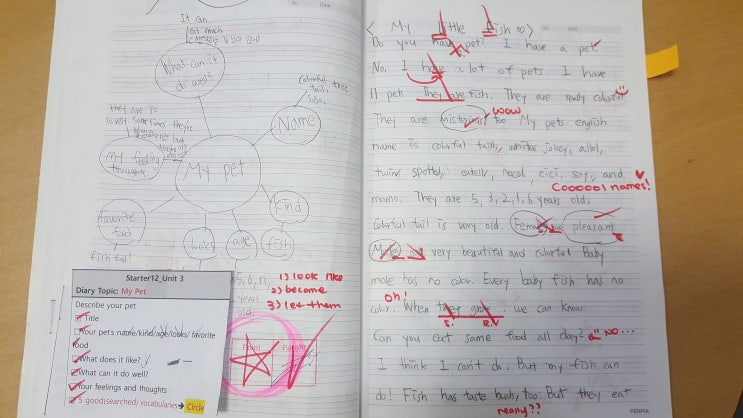 It can.
eat much
What can it
do well?
they are so
lovely
My feeling
thoughts
My pet
Colorful tree
tail,
Name
kind
favorite
food
fish food!
looks
age
fish
years
old.
1) look nice
2) become
3) let them
Starter12_Unit 3
Diary Topic: My Pet
Describe your pet
Title
Your pet's name/kind/age/looks/ favorite
food
What does it like?
What can it do well?
Your feelings and thoughts
5 good(searched) vocabularies → Circle
Point
Parent
< My little fish ∞ >
Do you have pet? I have a pet.
No. I have a lot of pets. I have
11 pets. They are fish. They are really colorful.
wow
They are misterious too. My pets english
name is colorful tail,
twin spotted, cici, and
Coooool names!
momo. They are 5, 3, 2, 1, 6 years old,
Colorful tail is very old. Female pleasant
Male very beautiful and colorful Baby
mole has no color. Every baby fish has no
oh!
color. When they grow. we can know.
S. R.V
Can you eat same food all day? NO...
I think I can't do. But my fish can
do! Fish has taste too. But they eat
really??
PENPIA